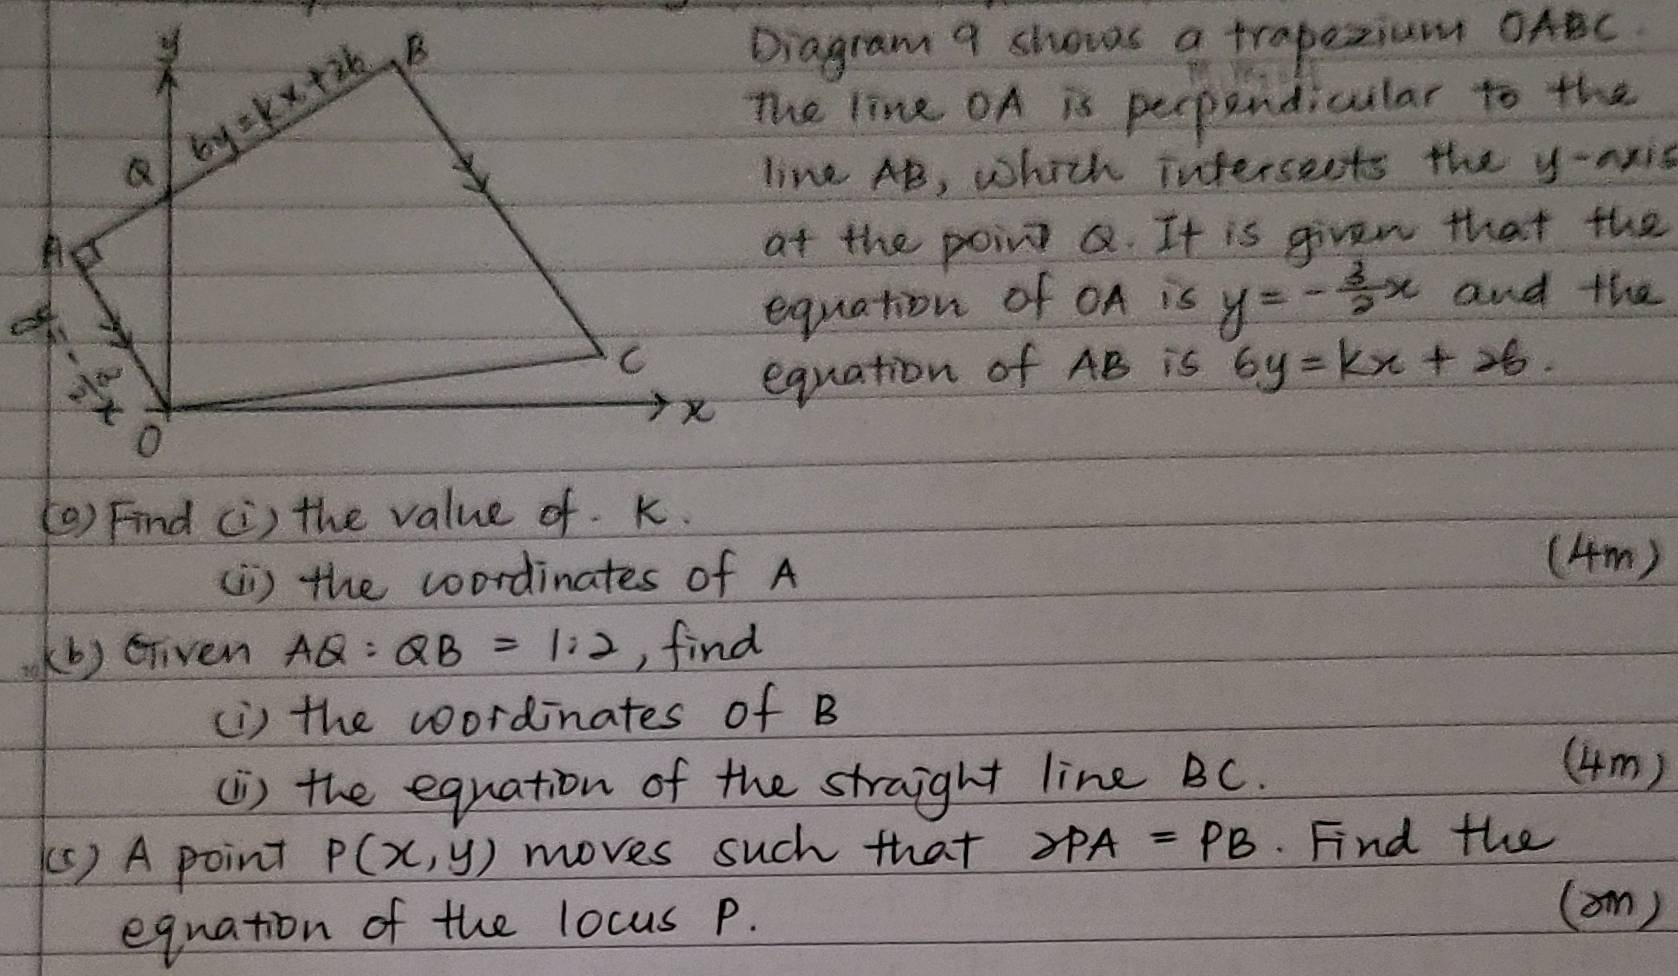 y
B
6y=kx+26
Q
A
C
x
O
Diagram 9 shows a trapezium OABC.
The line OA is perpendicular to the
line AB, which intersects the y-axis
at the point Q. It is given that the
equation of OA is y=-3/2x and the
equation of AB is 6y=kx+26.
(a) Find (i) the value of. k.
(ii) the coordinates of A
(4m)
(b) Given AQ:QB = 1:2, find
(i) the coordinates of B
(ii) the equation of the straight line BC.
(4m)
(c) A point P(x,y) moves such that 2PA = PB. Find the
equation of the locus P.
(2m)